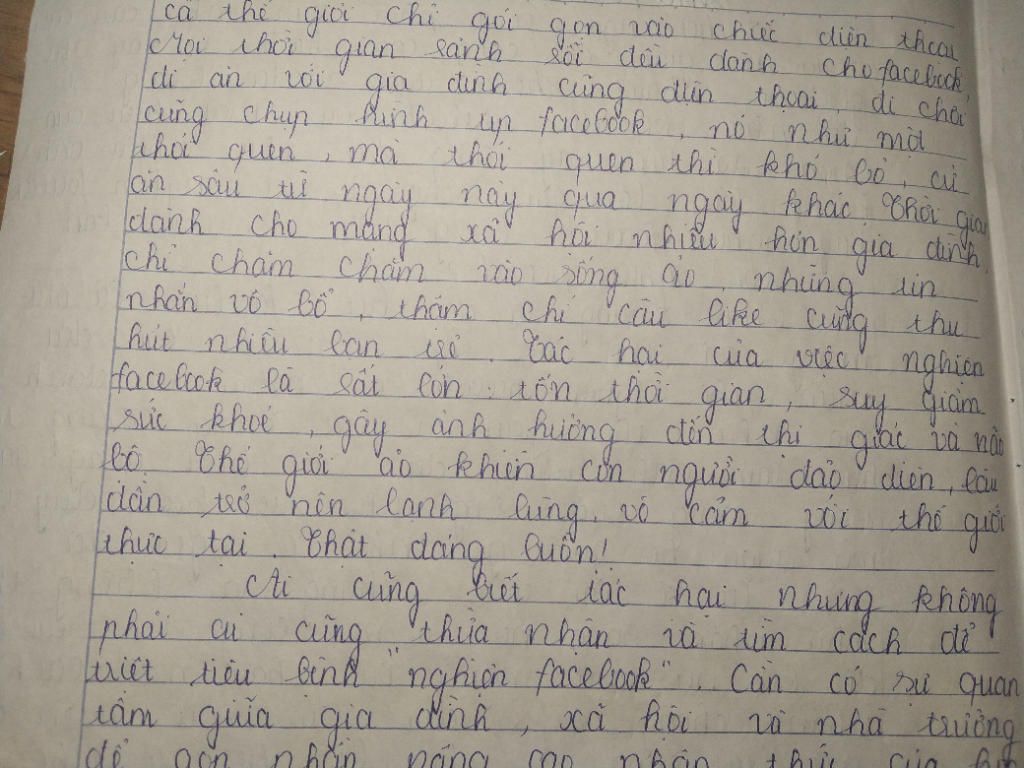 cả thế giới chỉ gói gọn vào chiếc điện thoại
Mọi thời gian sảnh sổi đều dành cho facebook,
đi ăn với gia đình cũng điện thoại, đi chơi
cũng chụp hình up facebook, nó như một
thói quen, mà thói quen thì khó bỏ, cứ
ăn sâu từ ngày này qua ngày khác. Thời gian
dành cho mạng xã hội nhiều hơn gia đình,
chỉ chăm chăm vào sống ảo, những tin
nhắn vô bổ, thậm chí câu like cũng thu
hút nhiều bạn trẻ. Tác hại của việc nghiện
facebook là rất lớn: tốn thời gian, suy giảm
sức khoẻ, gây ảnh hưởng đến thị giác và não
bộ. Thế giới ảo khiến con người đảo điên, lâu
dần trở nên lạnh lùng, vô cảm với thế giới
thực tại. Thật đáng buồn!
Ai cũng biết tác hại nhưng không
phải ai cũng thừa nhận và tìm cách để
triệt tiêu bệnh "nghiện facebook". Cần có sự quan
tâm giữa gia đình, xã hội và nhà trường
để nhận nâng cao nhận thức của